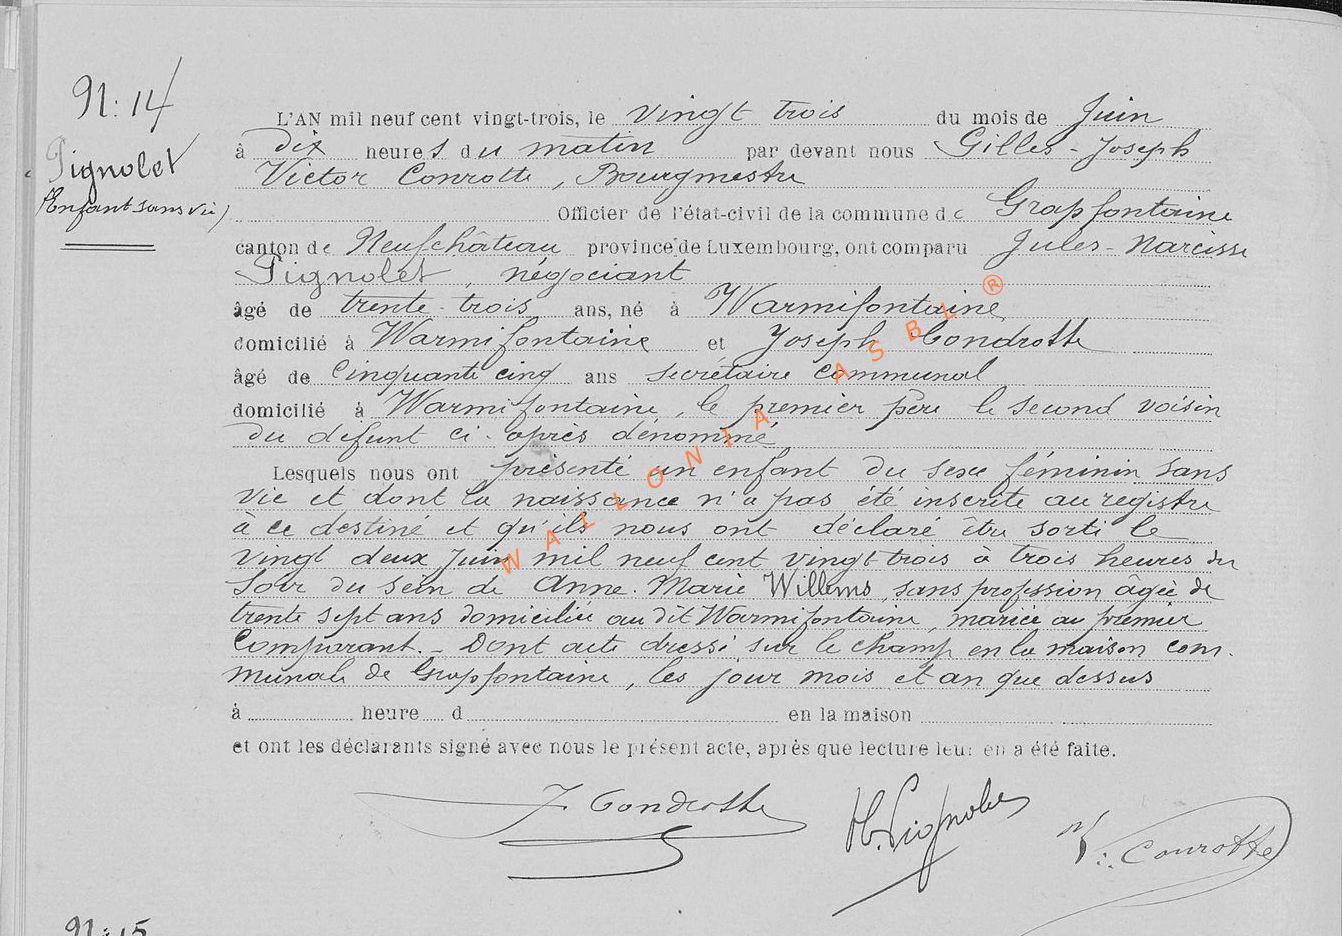 N: 14
Pignolet
(Enfant sans vie)
L'AN mil neuf cent vingt-trois, le vingt trois du mois de Juin
à dix heures du matin par devant nous Gilles-Joseph
Victor Conrotte, Bourgmestre
Officier de l'état-civil de la commune de Grapfontaine
canton de Neufchâteau province de Luxembourg, ont comparu Jules-Narcisse
Pignolet, négociant
âgé de trente-trois ans, né à Warmifontaine
domicilié à Warmifontaine et Joseph Condrotte
âgé de Cinquante cinq ans secrétaire communal
domicilié à Warmifontaine, le premier père le second voisin
du défunt ci-après dénommé
Lesquels nous ont présenté un enfant du sexe féminin sans
vie et dont la naissance n'a pas été inscrite au registre
à ce destiné et qu'ils nous ont déclaré être sorti le
vingt deux Juin mil neuf cent vingt-trois à trois heures du
soir du sein de Anne-Marie Willems, sans profession âgée de
trente sept ans domiciliée au dit Warmifontaine, mariée au premier
Comparant. - Dont acte dressé sur le champ en la maison com-
munale de Grapfontaine, les jour mois et an que dessus
à heure d en la maison
et ont les déclarants signé avec nous le présent acte, après que lecture leur en a été faite.
J Condrotte
Pignolet
V: Conrotte
N: 15
WALLONIA ASBL ®